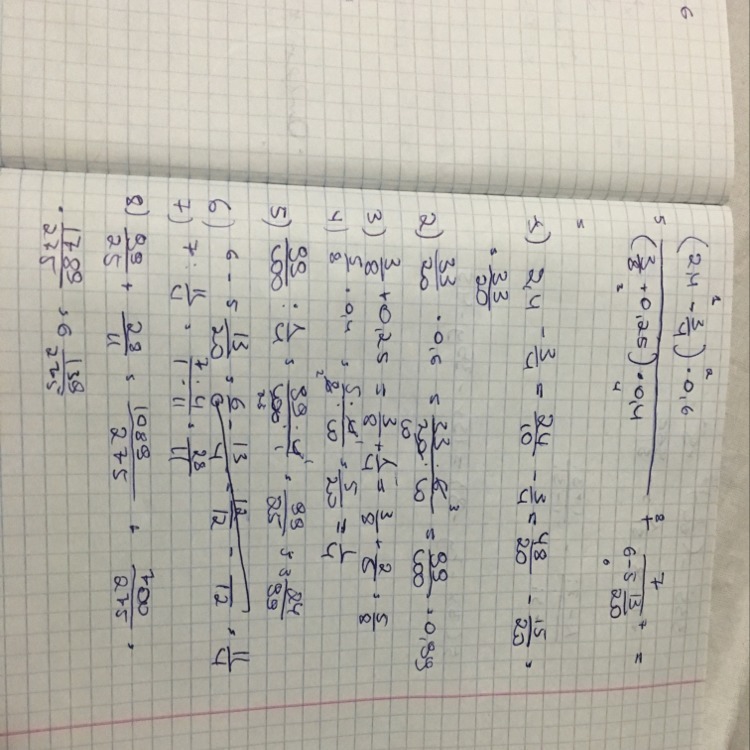 6
(2,4 - 3/4) · 0,6
5 ———————— + 7/(6-5 13/20) =
(3/8 + 0,25) · 0,4
1) 2,4 - 3/4 = 24/10 - 3/4 = 48/20 - 15/20 =
= 33/20
2) 33/20 · 0,6 = 33·6/20·10 = 99/100 = 0,99
3) 3/8 + 0,25 = 3/8 + 1/4 = 3/8 + 2/8 = 5/8
4) 5/8 · 0,4 = 5·4/8·10 = 5/20 = 1/4
5) 99/100 : 1/4 = 99·4/100·1 = 99/25 = 3 24/99
6) 6 - 5 13/20 = 6 - 13/4 = 12/12 - /12 = 11/4
7) 7 : 11/4 = 7·4/1·11 = 28/11
8) 99/25 + 28/11 = 1089/275 + 700/275 =
= 1789/275 = 6 139/275